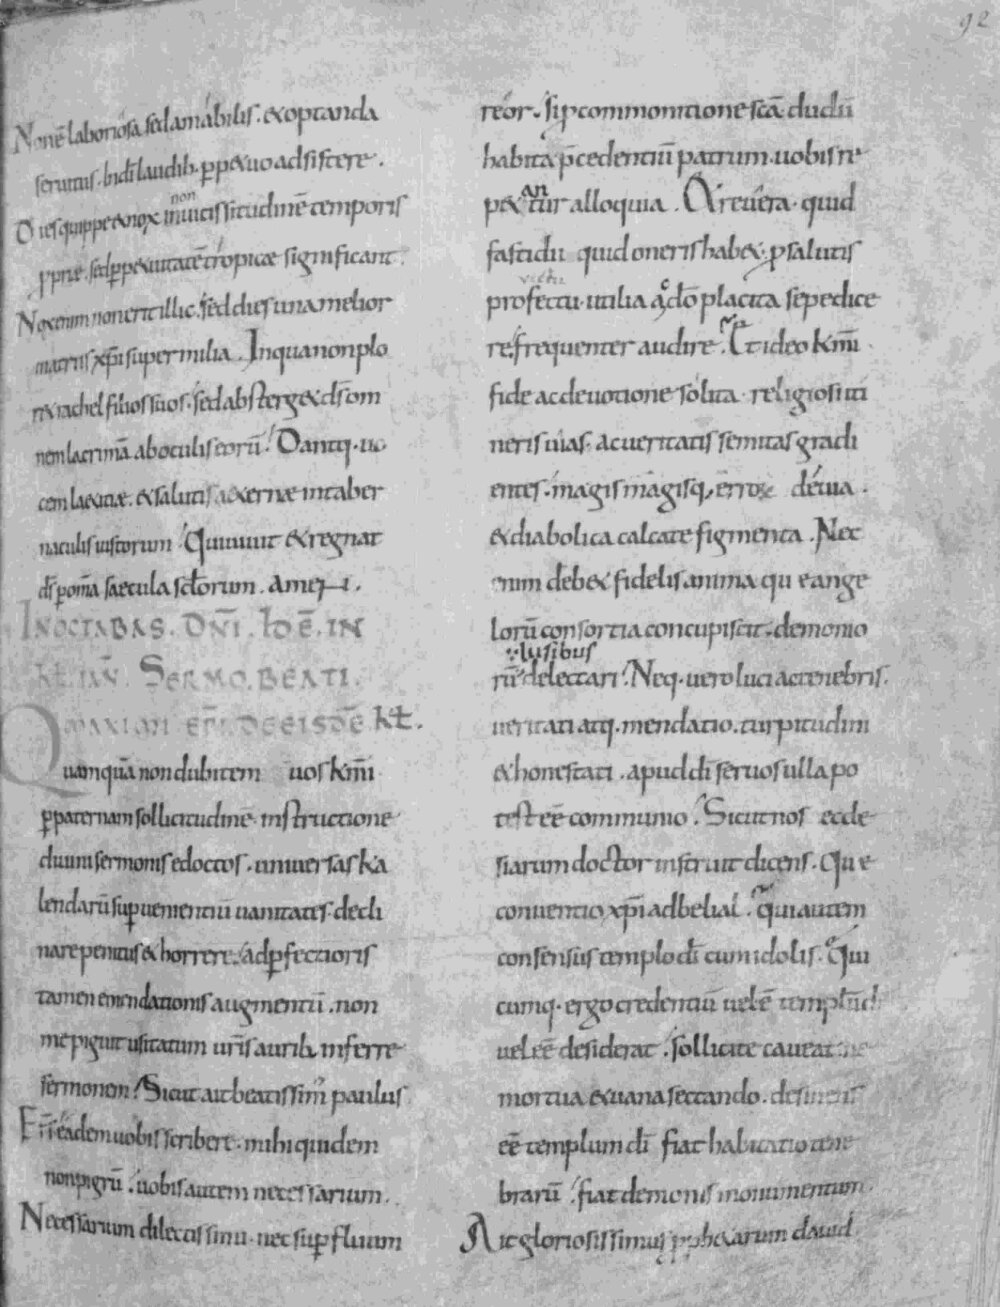 92
Non ē laboriosa sed amabilis. exoptanda
seruitus. in di laudib. ꝑpetuo adsistere.
Dies quippe et nox non in uicissitudinē temporis
sed ꝑpetuitatē tropicæ significant.
Nox enim non erit illic. sed dies una melior
atriis xp̄i super milia. In qua non plo
ret rachel filios suos. sed absterget ds̄ om
nem lacrimā ab oculis eorū. Dantiq. uo
cem laetitiæ. et salutis aeternæ in taber
naculis iustorum. Qui uiuit et regnat
ds̄ ꝑ om̄a saecula sc̄lorum. amen.
IN OCTABAS. DN̄I. ID Ē. IN
KL. IAN̄. SERMO. BEATI.
MAXIMI EP̄I. DE EISDĒ KL.
Quamquā non dubitem uos km̄i
ꝑ paternam sollicitudinē. instructione
diuini sermonis edoctos. uniuersas ka
lendarū superuenientiū uanitates. decli
nare penitus et horrere. ad ꝑfectioris
tamen emendationis augmentū. non
me piguit usitatum ur̄is aurib. inferre
sermonem. Sicut ait beatissim' paulus
Fr̄s eadem uobis scribere. mihi quidem
non pigrū. uobis autem necessarium.
Necessarium dilectissimi. nec superfluum
reor. si ꝑ commonitione sc̄ā dudū
habita p̄cedentiū patrum. uobis re
petantur alloquia. At reuera. quid
fastidii quid oneris habet. ꝓ salutis
profectu. utilia ac dō placita sepe dice
re. frequenter audire. Et ideo km̄i
fide ac deuotione solita. religiosi iti
neris uias. ac ueritatis semitas gradi
entes. magis magisq. erroꝝ deuia.
et diabolica calcate figmenta. Nec
enim debet fidelis anima que ange
lorū consortia concupiscit. demonio
rū lusibus delectari. Neq. uero luci ac tenebris.
ueritati atq. mendatio. turpitudini
et honestati. apud di seruos ulla po
test eē communio. Sicut nos eccle
siarum doctor instruit dicens. Que
conuentio xp̄i ad belial. qui autem
consensus templo dī cum idolis. Qui
cumq. ergo credentiū uel ē templū dī
uel eē desiderat. sollicite caueat ne
mortua et uana sectando. desinens
eē templum dī fiat habitatio tene
brarū. fiat demonis monumentum.
Ait gloriosissimus ꝓphetarum dauid